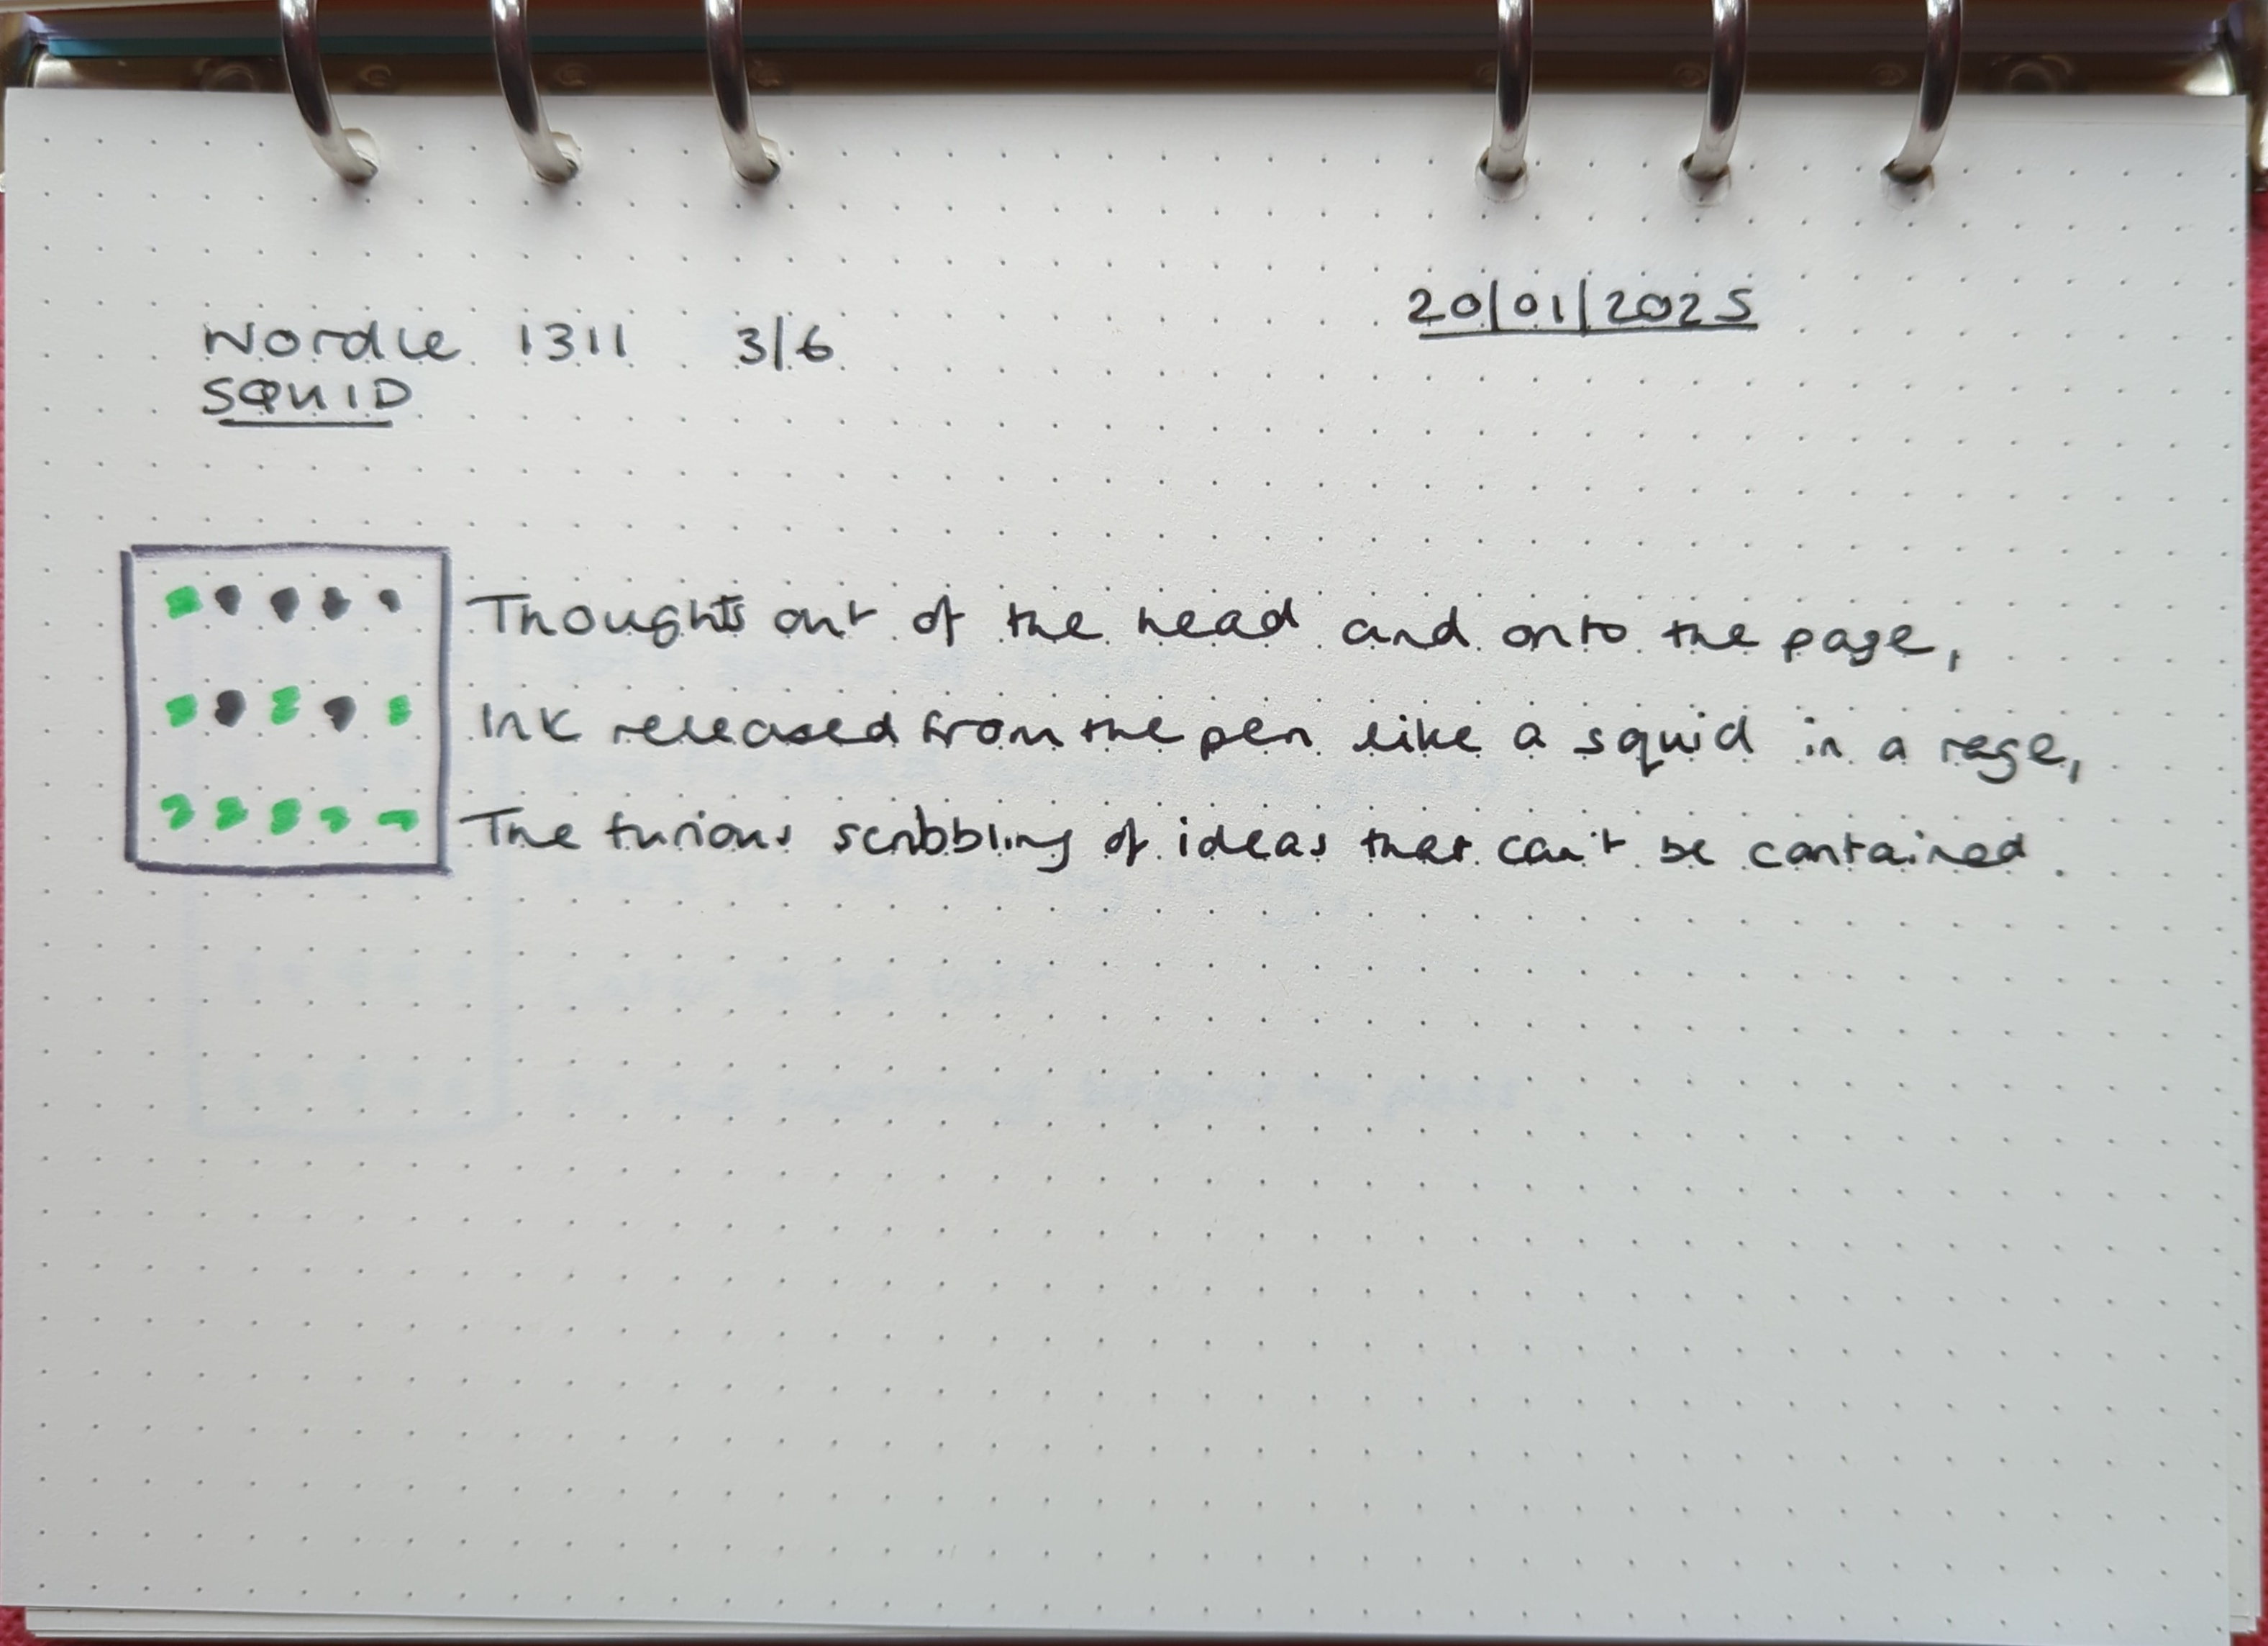 Wordle 1311 3/6
20/01/2025
SQUID
Thoughts out of the head and onto the page,
Ink released from the pen like a squid in a rage,
The furious scribbling of ideas that can't be contained.